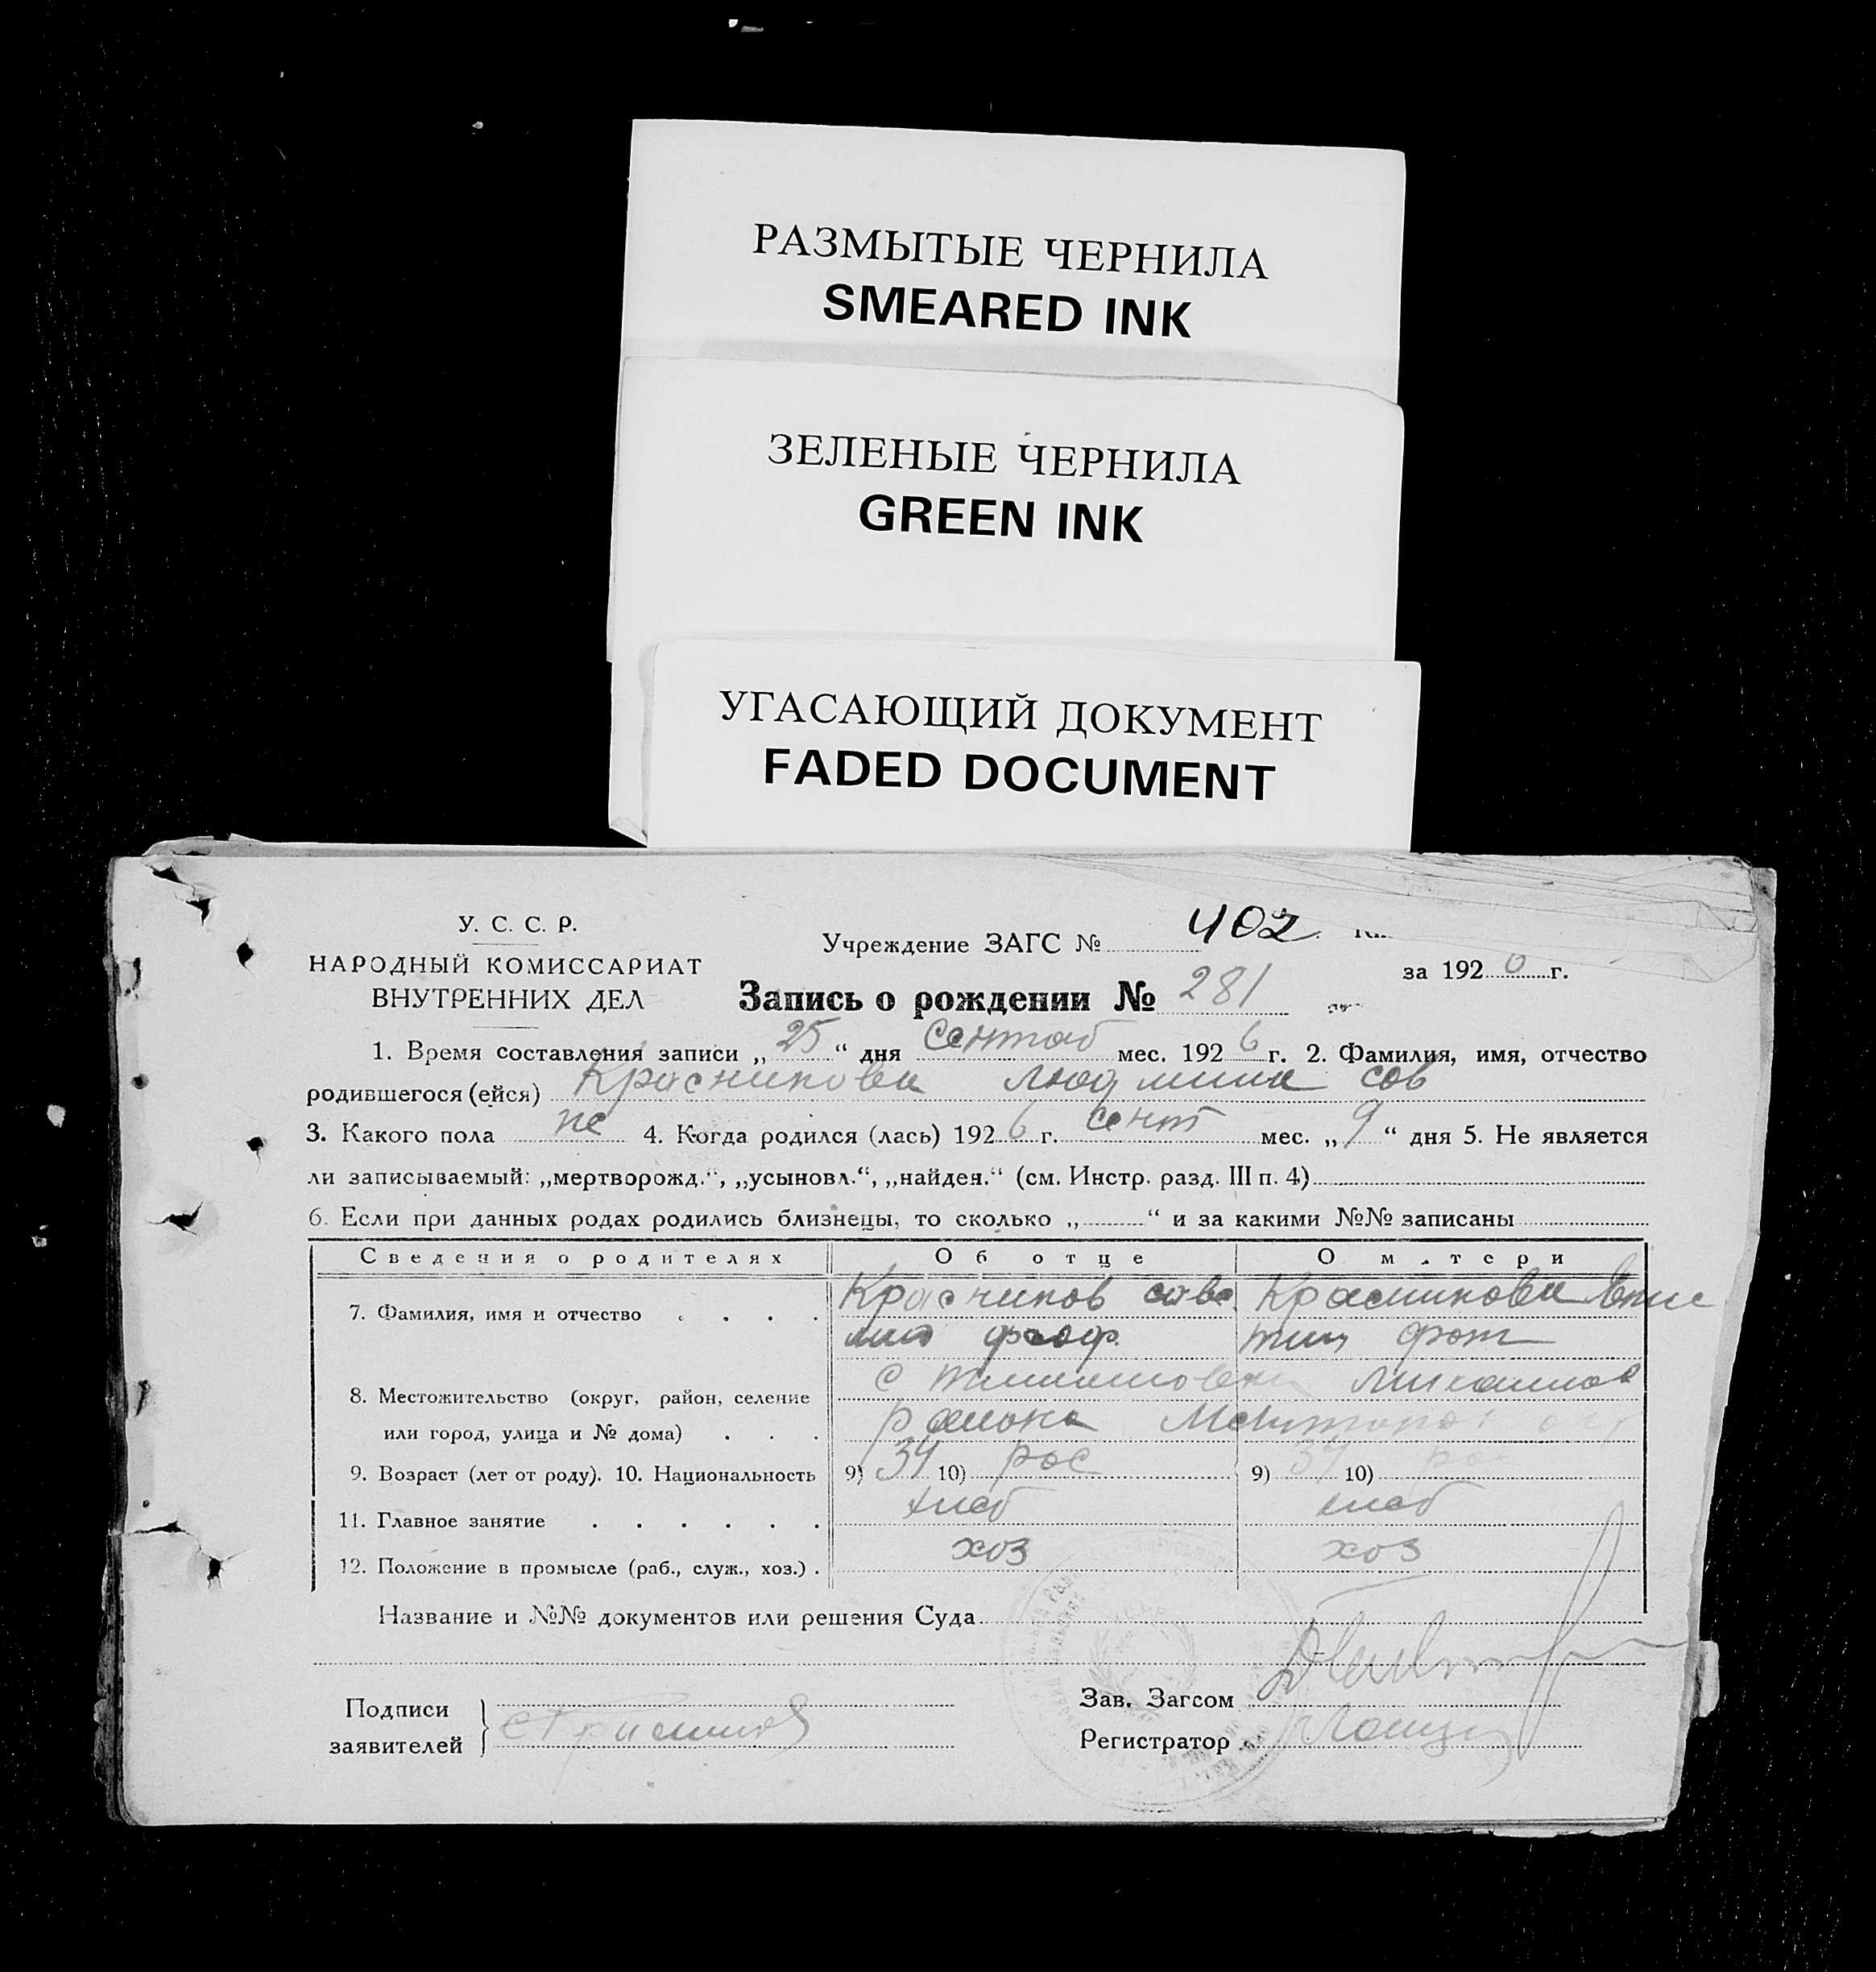 РАЗМЫТЫЕ ЧЕРНИЛА
SMEARED INK
ЗЕЛЕНЫЕ ЧЕРНИЛА
GREEN INK
УГАСАЮЩИЙ ДОКУМЕНТ
FADED DOCUMENT
У. С. С. Р.
НАРОДНЫЙ КОМИССАРИАТ
ВНУТРЕННИХ ДЕЛ
Учреждение ЗАГС № 402
за 192 6 г.
Запись о рождении № 281
1. Время составления записи „ 25 “ дня Сентяб мес. 192 6 г. 2. Фамилия, имя, отчество
родившегося (ейся) Красникова Людмила сав
3. Какого пола же 4. Когда родился (лась) 192 6 г. сент мес. „ 9 “ дня 5. Не является
ли записываемый: „мертворожд.“, „усыновл.“, „найден.“ (см. Инстр. разд. III п. 4)
6. Если при данных родах родились близнецы, то сколько „ “ и за какими №№ записаны
Сведения о родителях Об отце О м.тери
7. Фамилия, имя и отчество Красников саве Красникова
лий феоф
8. Местожительство (округ, район, селение
или город, улица и № дома) района
9. Возраст (лет от роду). 10. Национальность 9) 34 10) рос 9) 34 10) рос
11. Главное занятие хлеб хлеб
12. Положение в промысле (раб., служ., хоз.) хоз хоз
Название и №№ документов или решения Суда
Подписи
заявителей
Зав. Загсом
Регистратор